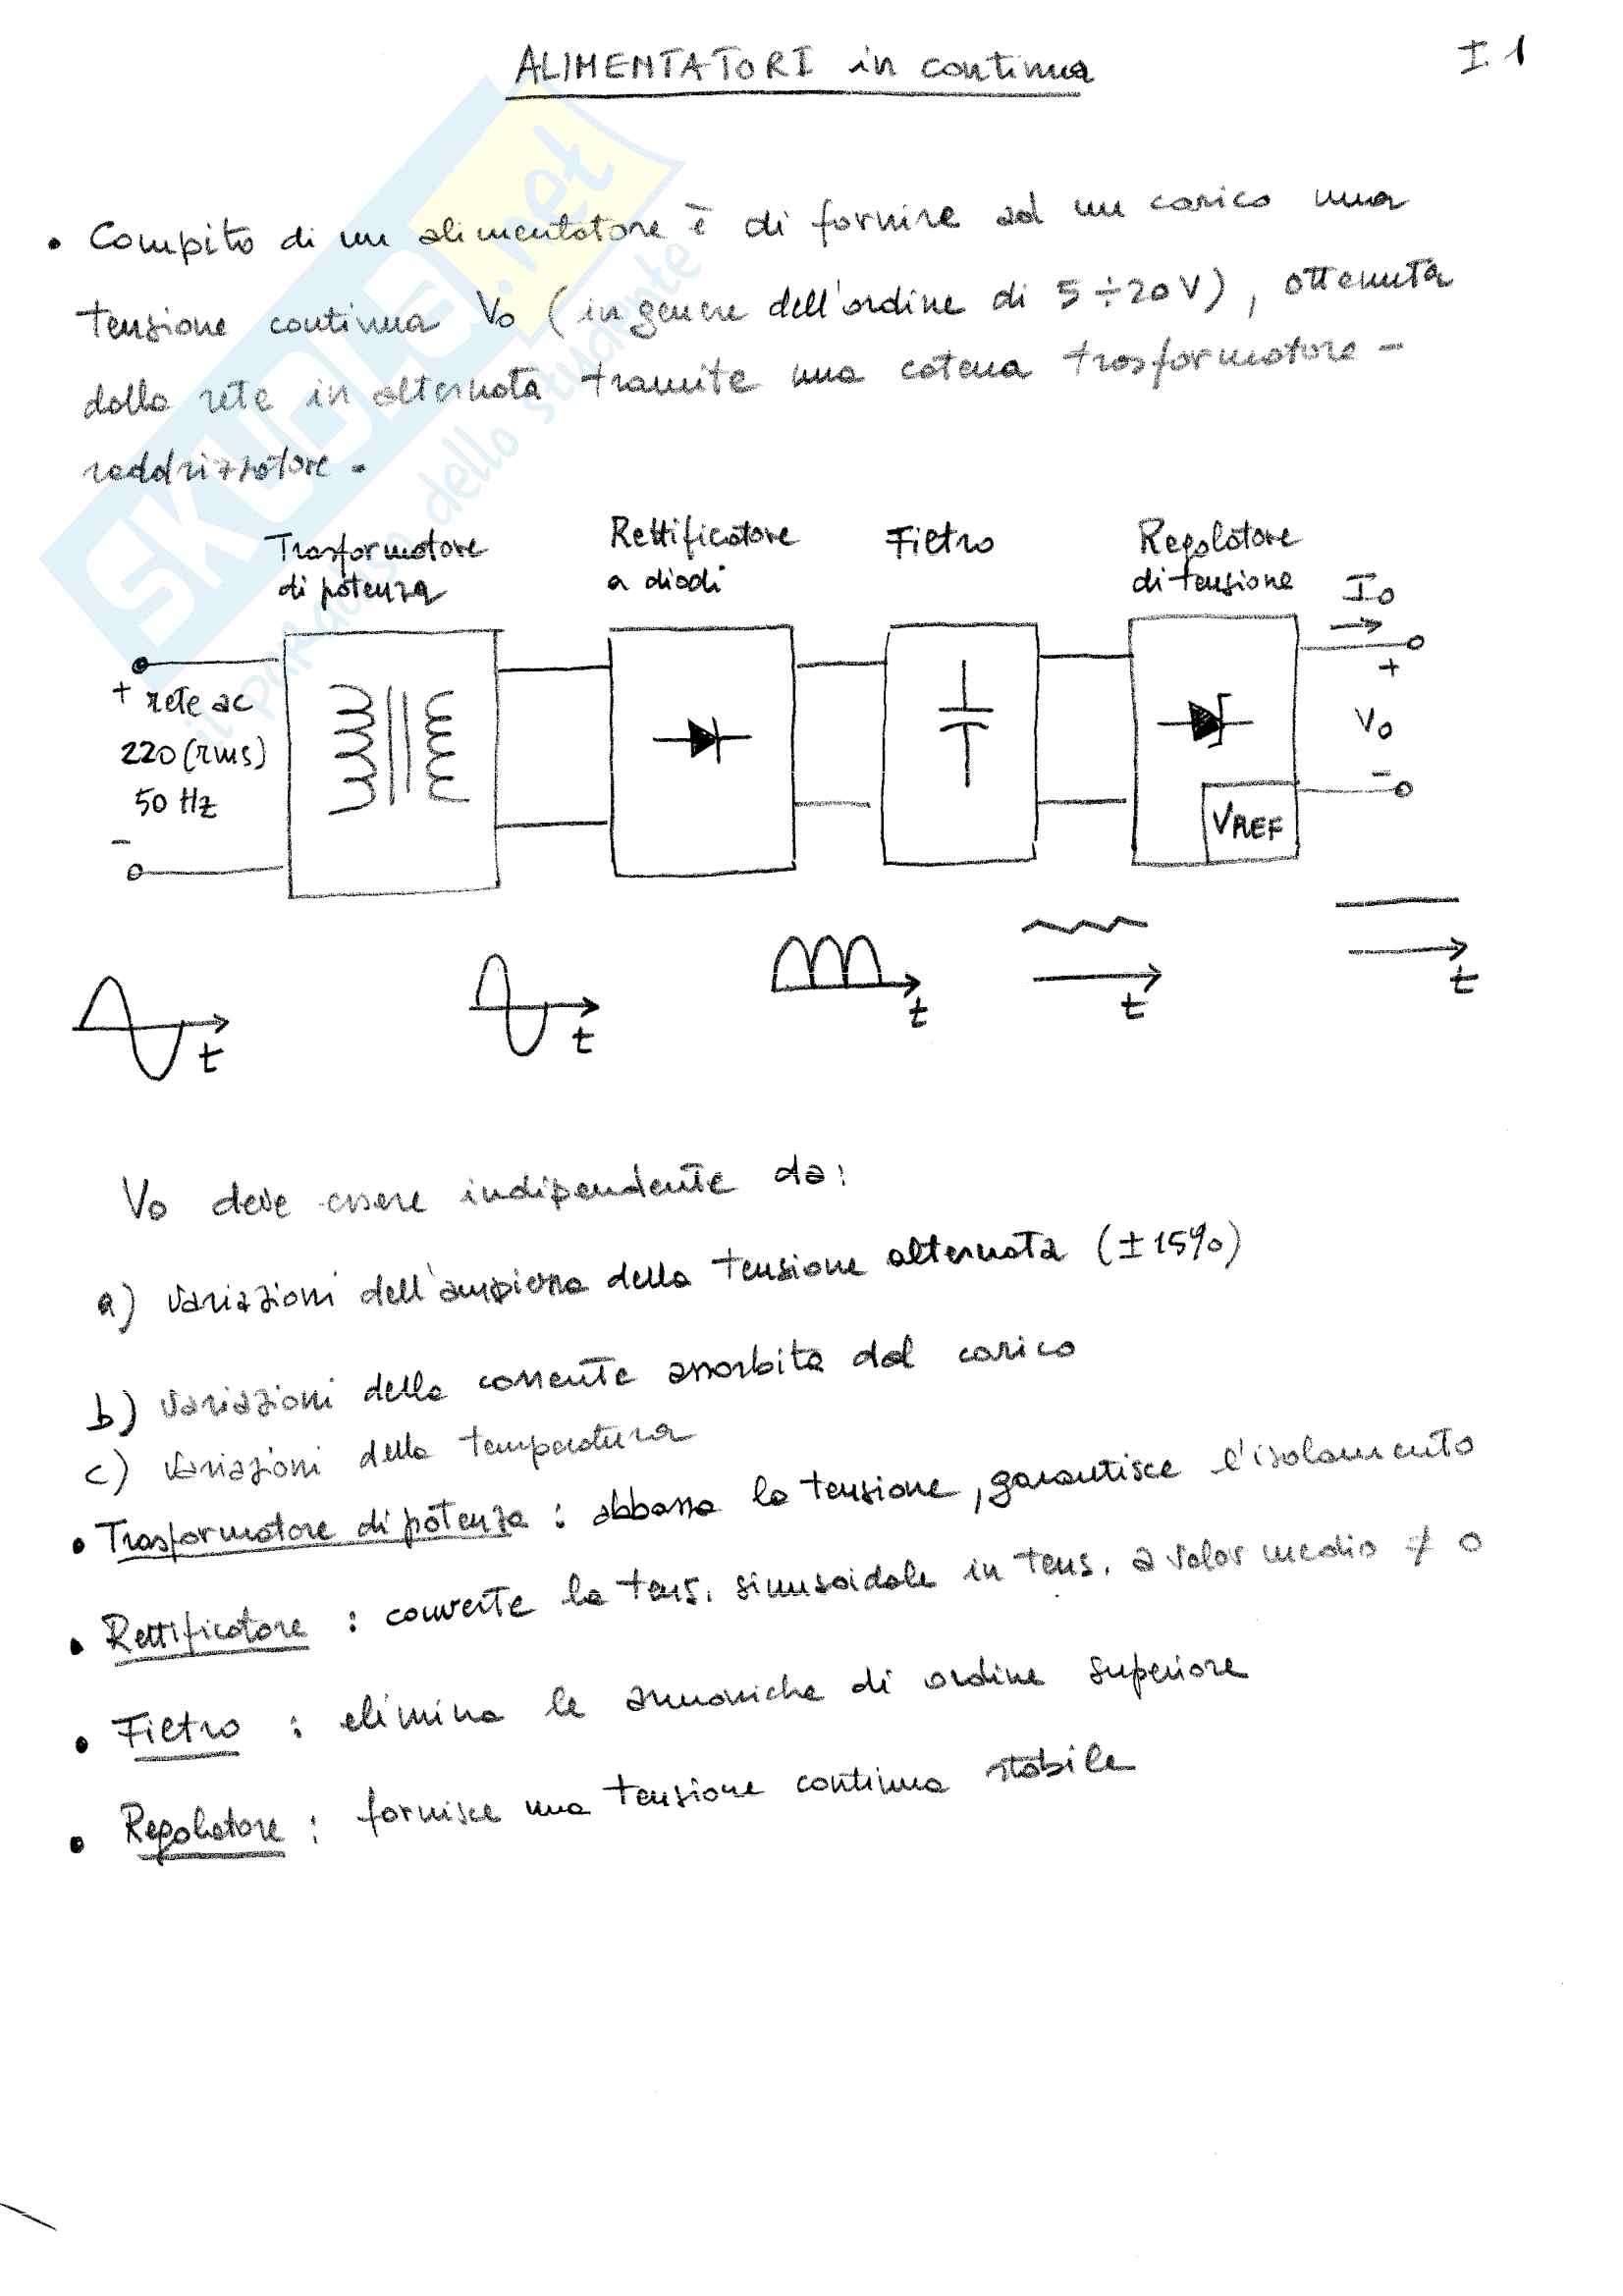 ALIMENTATORI in continua
I.1
• Compito di un alimentatore è di fornire ad un carico una
tensione continua Vo (in genere dell'ordine di 5÷20V), ottenuta
dalla rete in alternata tramite una catena trasformatore -
raddrizzatore.
SKUOLA.net
il paradiso dello studente
Trasformatore
di potenza
Rettificatore
a diodi
Filtro
Regolatore
di tensione
Io
+ rete ac
220 (rms)
50 Hz
-
+
Vo
-
VREF
t
t
t
t
t
Vo deve essere indipendente da:
a) variazioni dell'ampiezza della tensione alternata (±15%)
b) variazioni della corrente assorbita dal carico
c) variazioni della temperatura
• Trasformatore di potenza : abbassa la tensione, garantisce l'isolamento
• Rettificatore : converte la tens. sinusoidale in tens. a valor medio ≠ 0
• Filtro : elimina le armoniche di ordine superiore
• Regolatore : fornisce una tensione continua stabile